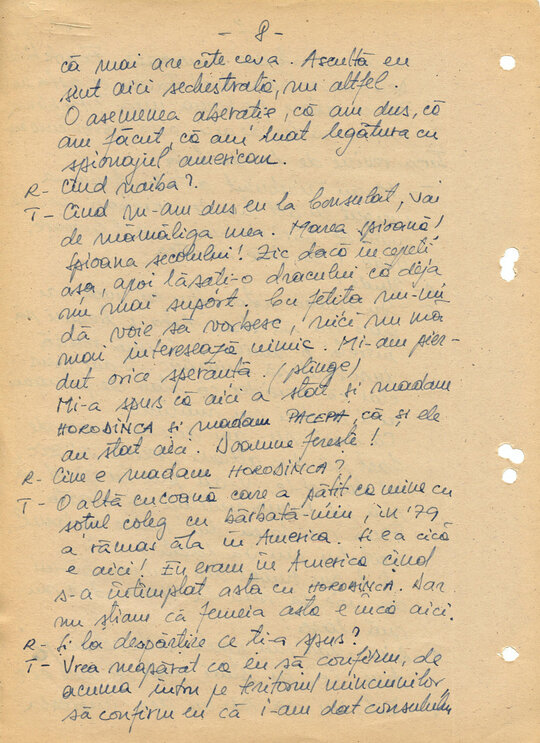 - 8 -
că mai are cîte ceva. Ascultă eu
sînt aici sechestrată, nu altfel.
O asemenea aberație, că am dus, că
am făcut, că am luat legătura cu
spionajul american.
R- Cînd naiba?
T- Cînd m-am dus eu la Consulat, vai
de mămăliga mea. Marea spioană!
Spioana secolului! Zic dacă începeți
așa, apoi lăsați-o dracului că deja
nu mai suport. Cu fetița nu-mi
dă voie să vorbesc, nici nu mă
mai interesează nimic. Mi-am pier-
dut orice speranță. (plînge)
Mi-a spus că aici a stat și madam
HORODINCA și madam PACEPA, că și ele
au stat aici. Doamne ferește!
R- Cine e madam HORODINCA?
T- O altă cucoană care a pățit ca mine cu
soțul coleg cu bărbată-miu, în '79
a rămas ăla în America. Și ea cică
e aici! Eu eram în America cînd
s-a întîmplat asta cu HORODINCA. Dar
nu știam că femeia asta e încă aici.
R- Și la despărțire ce ți-a spus?
T- Vrea neapărat ca eu să confirm, de
acuma intru pe teritoriul minciunilor
să confirm eu că i-am dat consulului